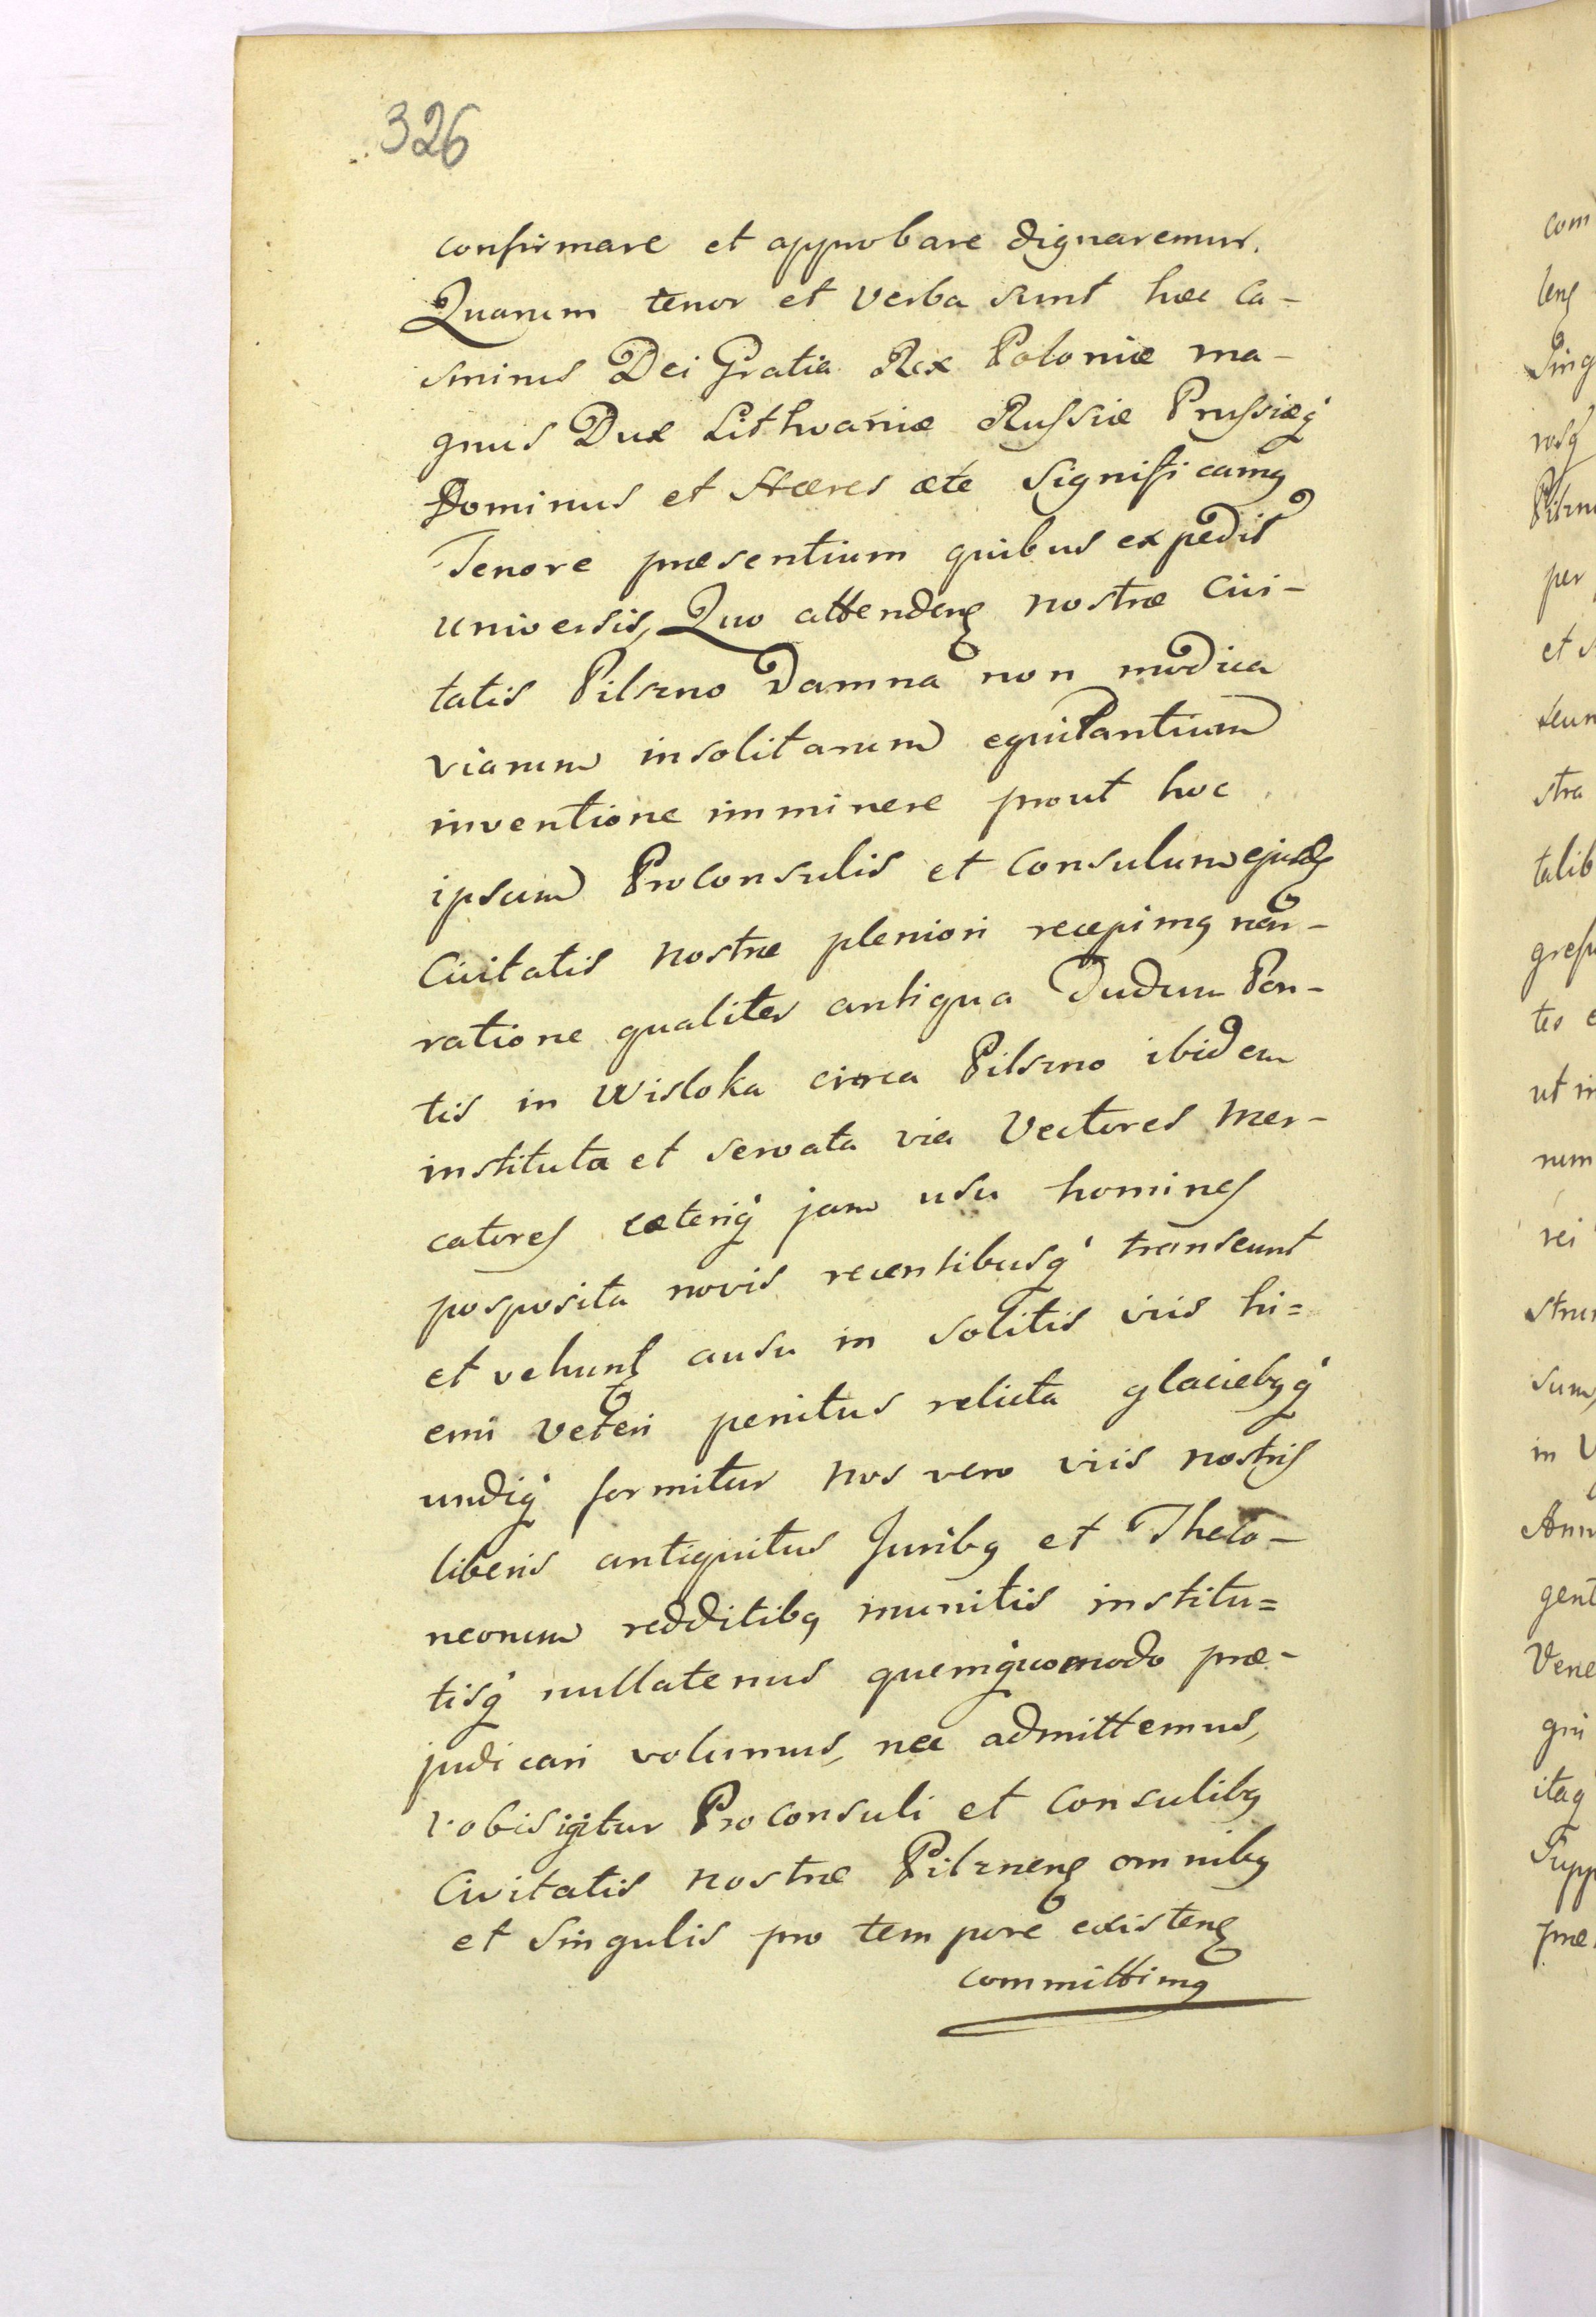 326
confirmare et approbare dignaremur.
Quarum tenor et verba sunt hæc Ca-
smirus Dei Gratia Rex Poloniæ ma-
gnus Dux Lithvaniæ Russiæ Prussiæq
Dominus et Hæres ætc Significamq
Tenore præsentium quibus expedit
universis, Quo attendenʒ nostræ Civi-
tatis Pilzno Damna non modica
viarum insolitarum equitantium
inventione imminere prout hoc
ipsum Proconsulis et Consulum ejusdʒ
Civitatis nostræ pleniori recepimq nar-
ratione qualiter antiqua Dudum Pon-
tis in Wisloka circa Pilzno ibidem
instituta et servata via Vectores Mer-
catores cæteriq jam usu homines
posposita novis recentibusq transeunt
et vehunt ausu in solitis viis hi=
emi veteri penitus relicta glaciebqq
undiq formitur nos vero viis nostris
liberis antiquitus Juribq et Thelo-
neorum redditibq munitis institu=
tisq nullatenus quemquomodo præ-
judicari volumus, nec admittemus,
vobis igitur Proconsuli et Consulibq
Civitatis nostræ Pilznenʒ omnibq
et Singulis pro tempore existenʒ
committimq
com
lenʒ
Sing
rosq
Pilzn
per
et
seun
stra
talib
tes
ut in
num
rei
stru
sum,
in
Ann
gent
Vene
itaq
Supp
præ